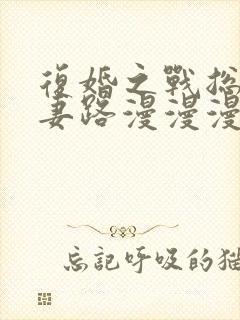 復婚之戰
妻路漫漫漫
忘記呼吸的猫